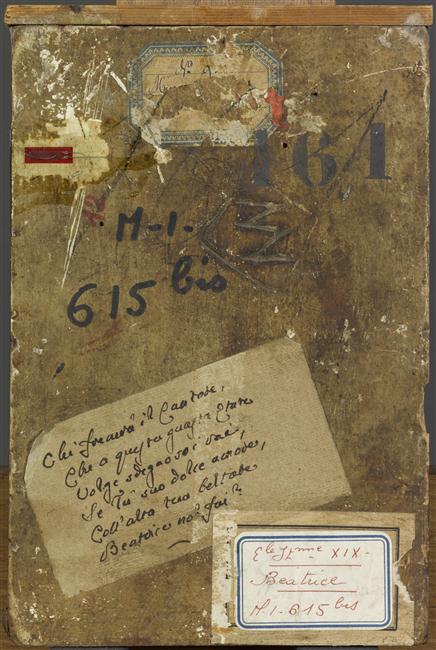 161
M-I-
615 bis
Chi frenarà il Cantore,
Che a questa guasta Etate
Volge sdegnosi rai,
Se Tu suo dolce amore,
Coll'alta tua beltate
Beatrice nol fai?
XIX-
Beatrice
M.I-615 bis